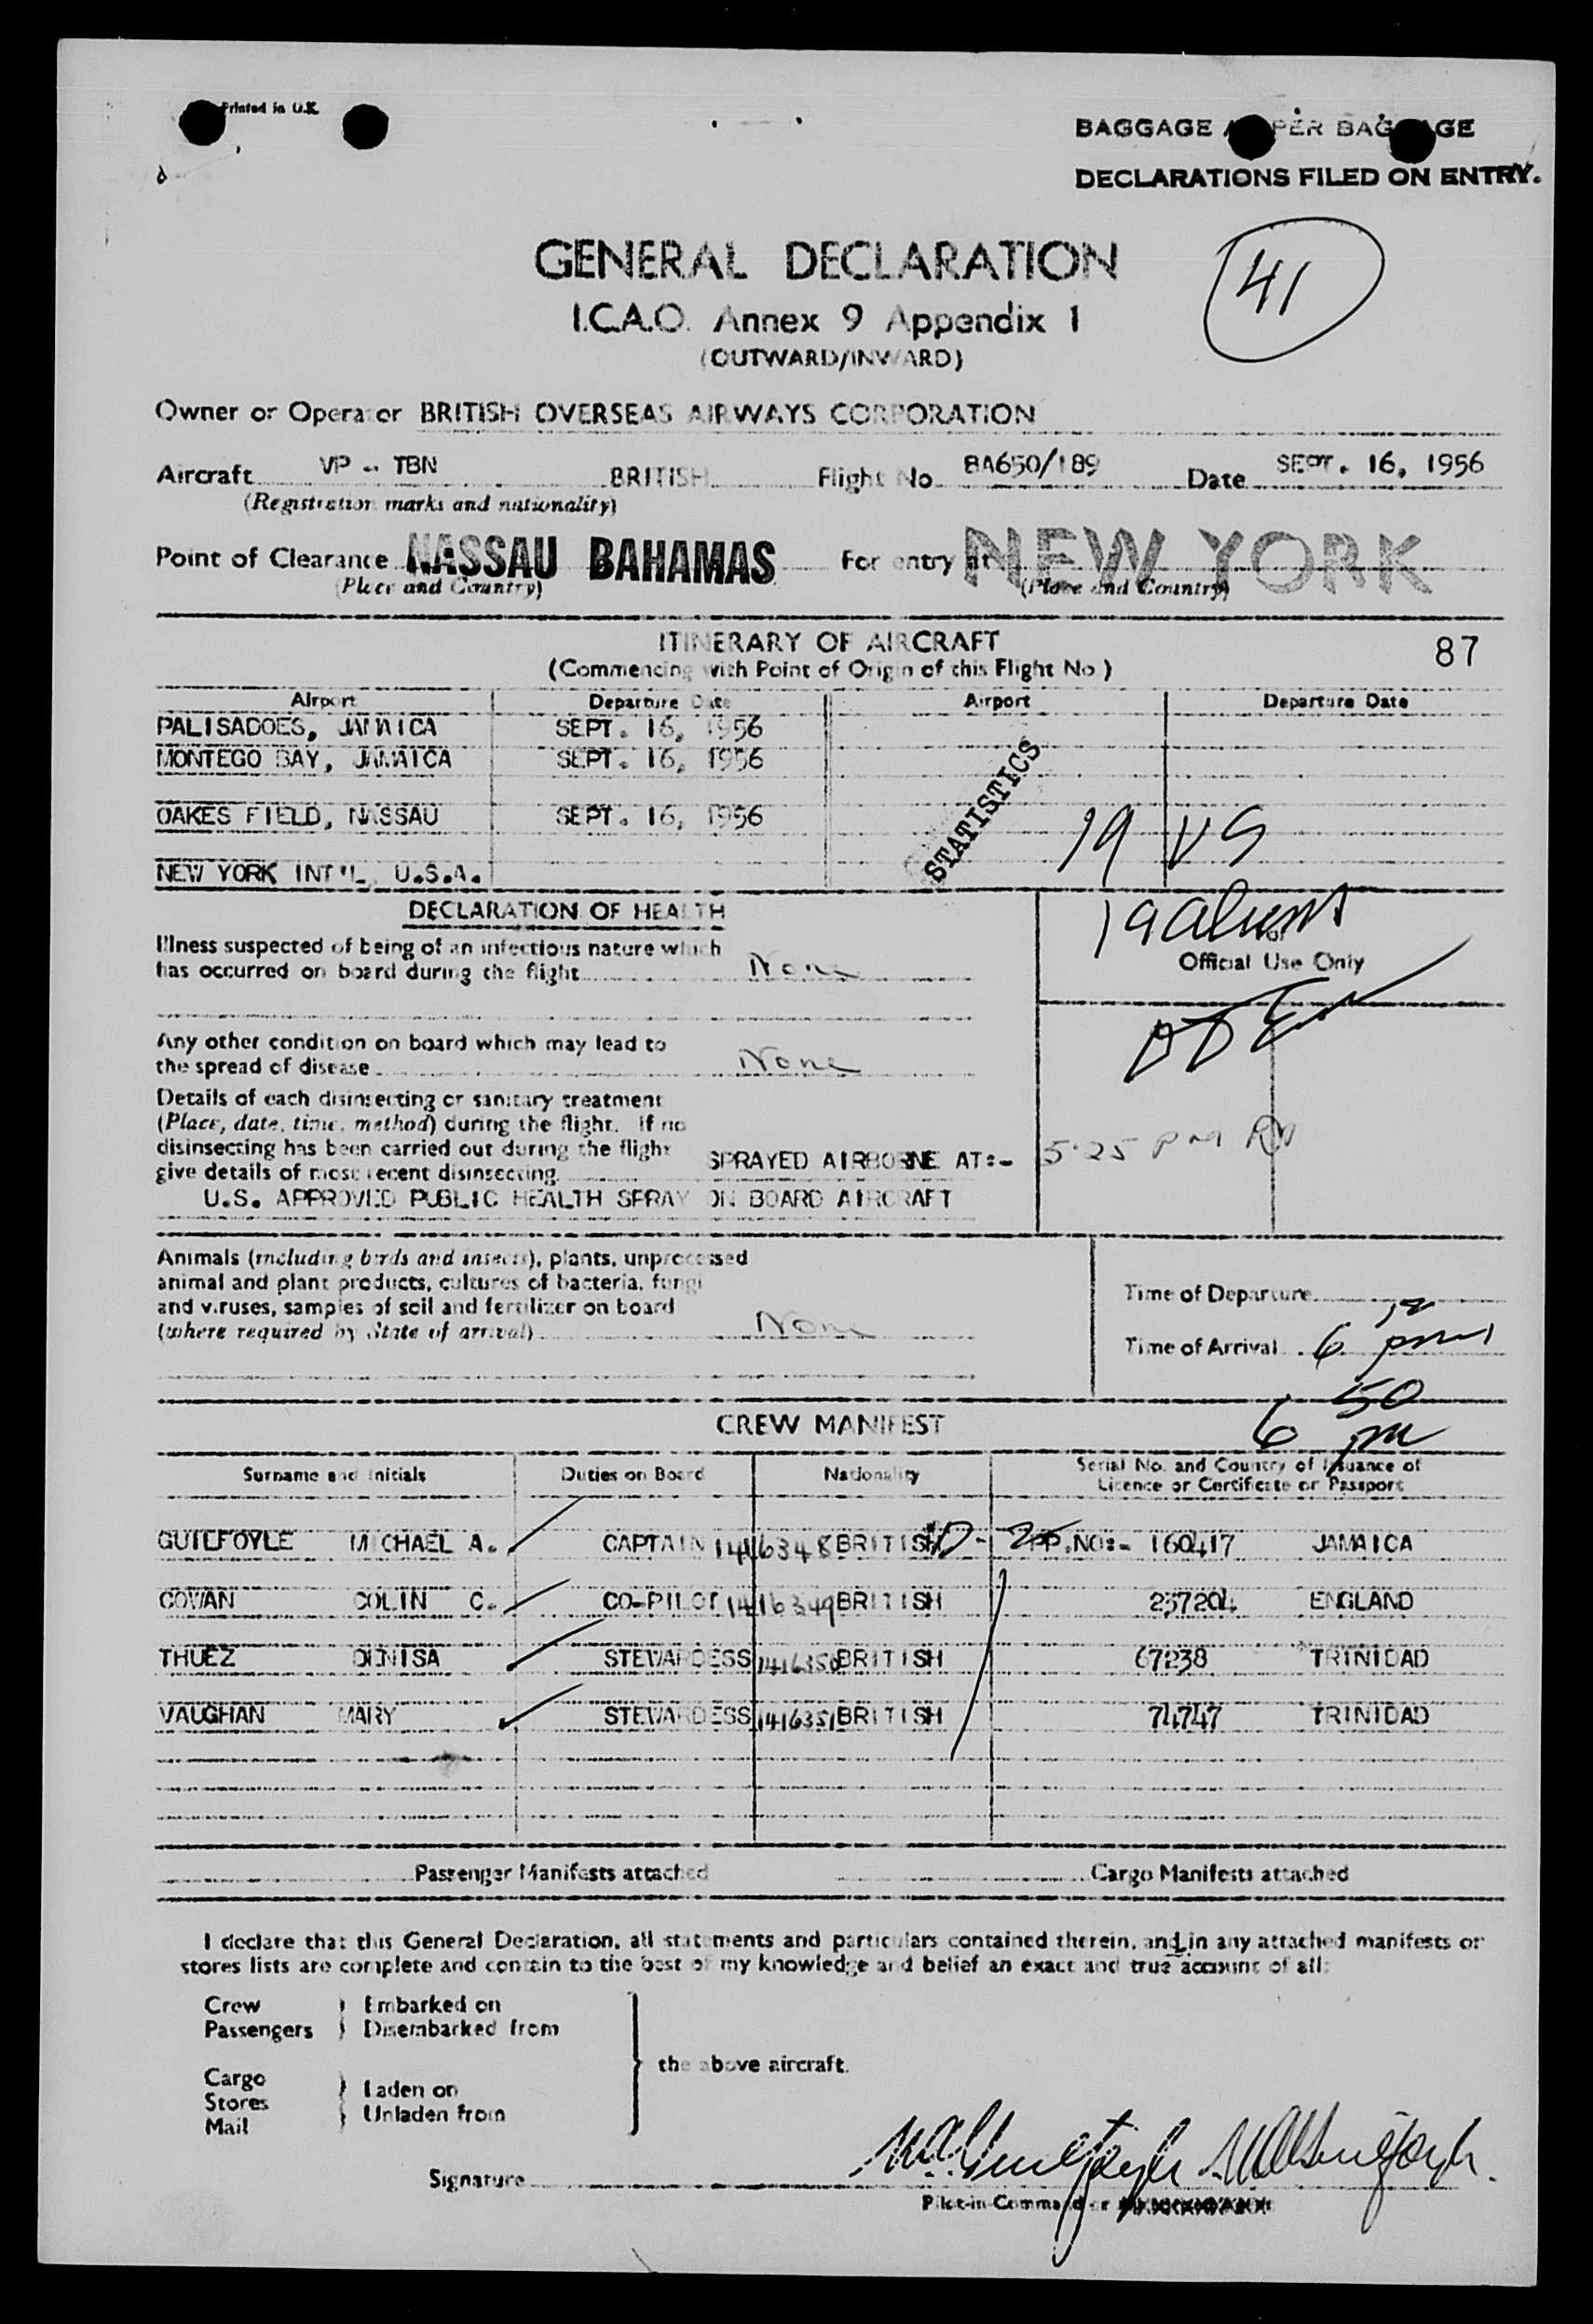 Printed in U.K.
BAGGAGE PER BAGGAGE
DECLARATIONS FILED ON ENTRY.
41
GENERAL DECLARATION
I.C.A.O. Annex 9 Appendix 1
(OUTWARD/INWARD)
Owner or Operator BRITISH OVERSEAS AIRWAYS CORPORATION
Aircraft VP - TBN BRITISH Flight No. BA650/189 Date SEPT. 16, 1956
(Registration marks and nationality)
Point of Clearance NASSAU BAHAMAS For entry at NEW YORK
(Place and Country) (Place and Country)
ITINERARY OF AIRCRAFT 87
(Commencing with Point of Origin of this Flight No.)
Airport Departure Date Airport Departure Date
PALISADOES, JAMAICA SEPT. 16, 1956
MONTEGO BAY, JAMAICA SEPT. 16, 1956
STATISTICS
OAKES FIELD, NASSAU SEPT. 16, 1956 19 US
NEW YORK INT'L U.S.A.
DECLARATION OF HEALTH 19 aliens
Illness suspected of being of an infectious nature which
has occurred on board during the flight None
For
Official Use Only
Any other condition on board which may lead to
the spread of disease None
Details of each disinsecting or sanitary treatment
(Place, date, time, method) during the flight. If no
disinsecting has been carried out during the flight
give details of most recent disinsecting. SPRAYED AIRBORNE AT:- 5.25 PM
U.S. APPROVED PUBLIC HEALTH SPRAY ON BOARD AIRCRAFT
Animals (including birds and insects), plants, unprocessed
animal and plant products, cultures of bacteria, fungi
and viruses, samples of soil and fertilizer on board
(where required by State of arrival) None
Time of Departure
Time of Arrival 6 pm
6 50 pm
CREW MANIFEST
Surname and Initials Duties on Board Nationality Serial No. and Country of Issuance of
Licence or Certificate or Passport
GUILFOYLE MICHAEL A. CAPTAIN 1416348 BRITISH PP.NO:- 160417 JAMAICA
COWAN COLIN C. CO-PILOT 1416349 BRITISH 257204 ENGLAND
THUEZ DENISA STEWARDESS 1416350 BRITISH 67238 TRINIDAD
VAUGHAN MARY STEWARDESS 1416351 BRITISH 74747 TRINIDAD
Passenger Manifests attached Cargo Manifests attached
I declare that this General Declaration, all statements and particulars contained therein, and in any attached manifests or
stores lists are complete and contain to the best of my knowledge and belief an exact and true account of all:
Crew } Embarked on
Passengers } Disembarked from
the above aircraft.
Cargo
Stores } Laden on
Mail } Unladen from
Signature
Pilot-in-Command or